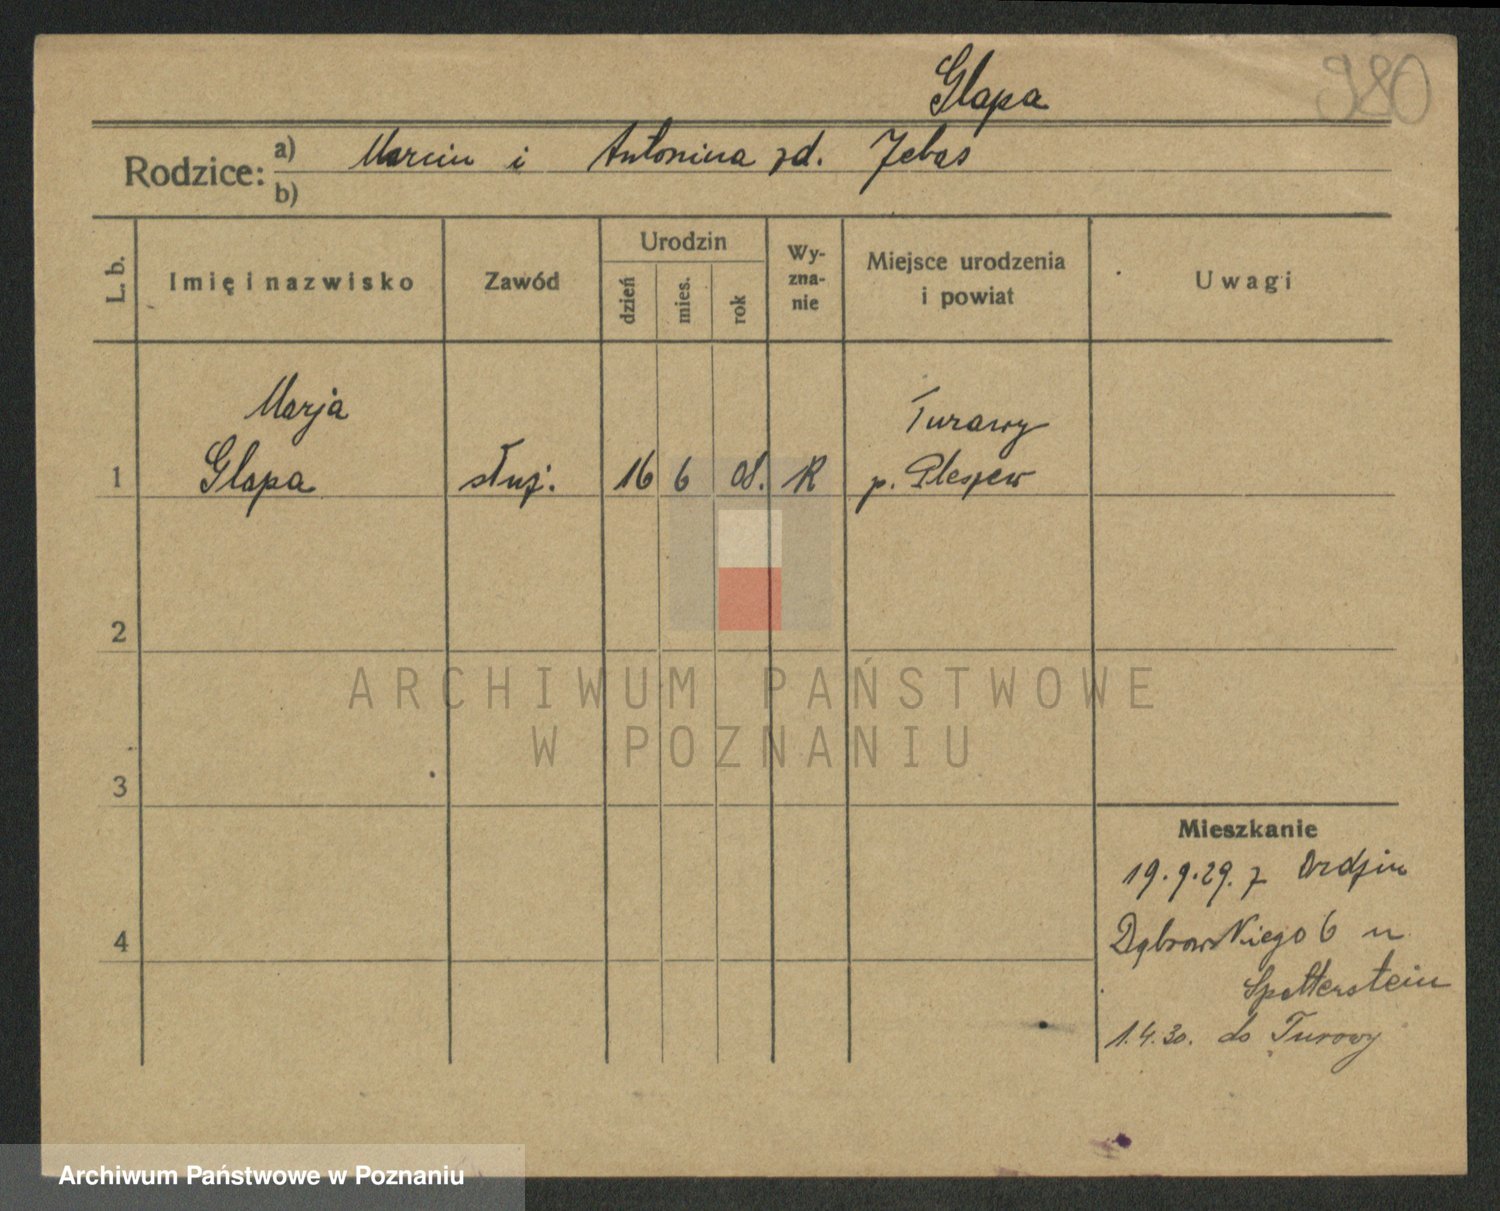 980
Glapa
Rodzice: a) Marcin i Antonina zd. Jebas
b)
L. b. Imię i nazwisko Zawód Urodzin dzień mies. rok Wy-zna-nie Miejsce urodzenia i powiat Uwagi
Marja Turawy
1 Glapa służ. 16 6 08. R p. Pleszew
2
ARCHIWUM PAŃSTWOWE
W POZNANIU
3
Mieszkanie
19.9.29. z
4 Dąbrowskiego 6 u
1.4.30. do Turowy
Archiwum Państwowe w Poznaniu